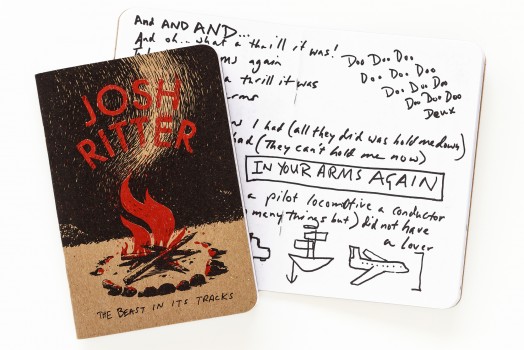 JOSH
RITTER
THE BEAST IN ITS TRACKS
And AND AND...
And oh... what a thrill it was!
again
a thrill it was
arms
Doo Doo Doo
Doo Doo Doo
Doo Doo
Doo Doo Doo
Deux
I had (all they did was hold me down)
had (They can't hold me now)
IN YOUR ARMS AGAIN
a pilot locomotive a conductor
many things but) did not have
a lover